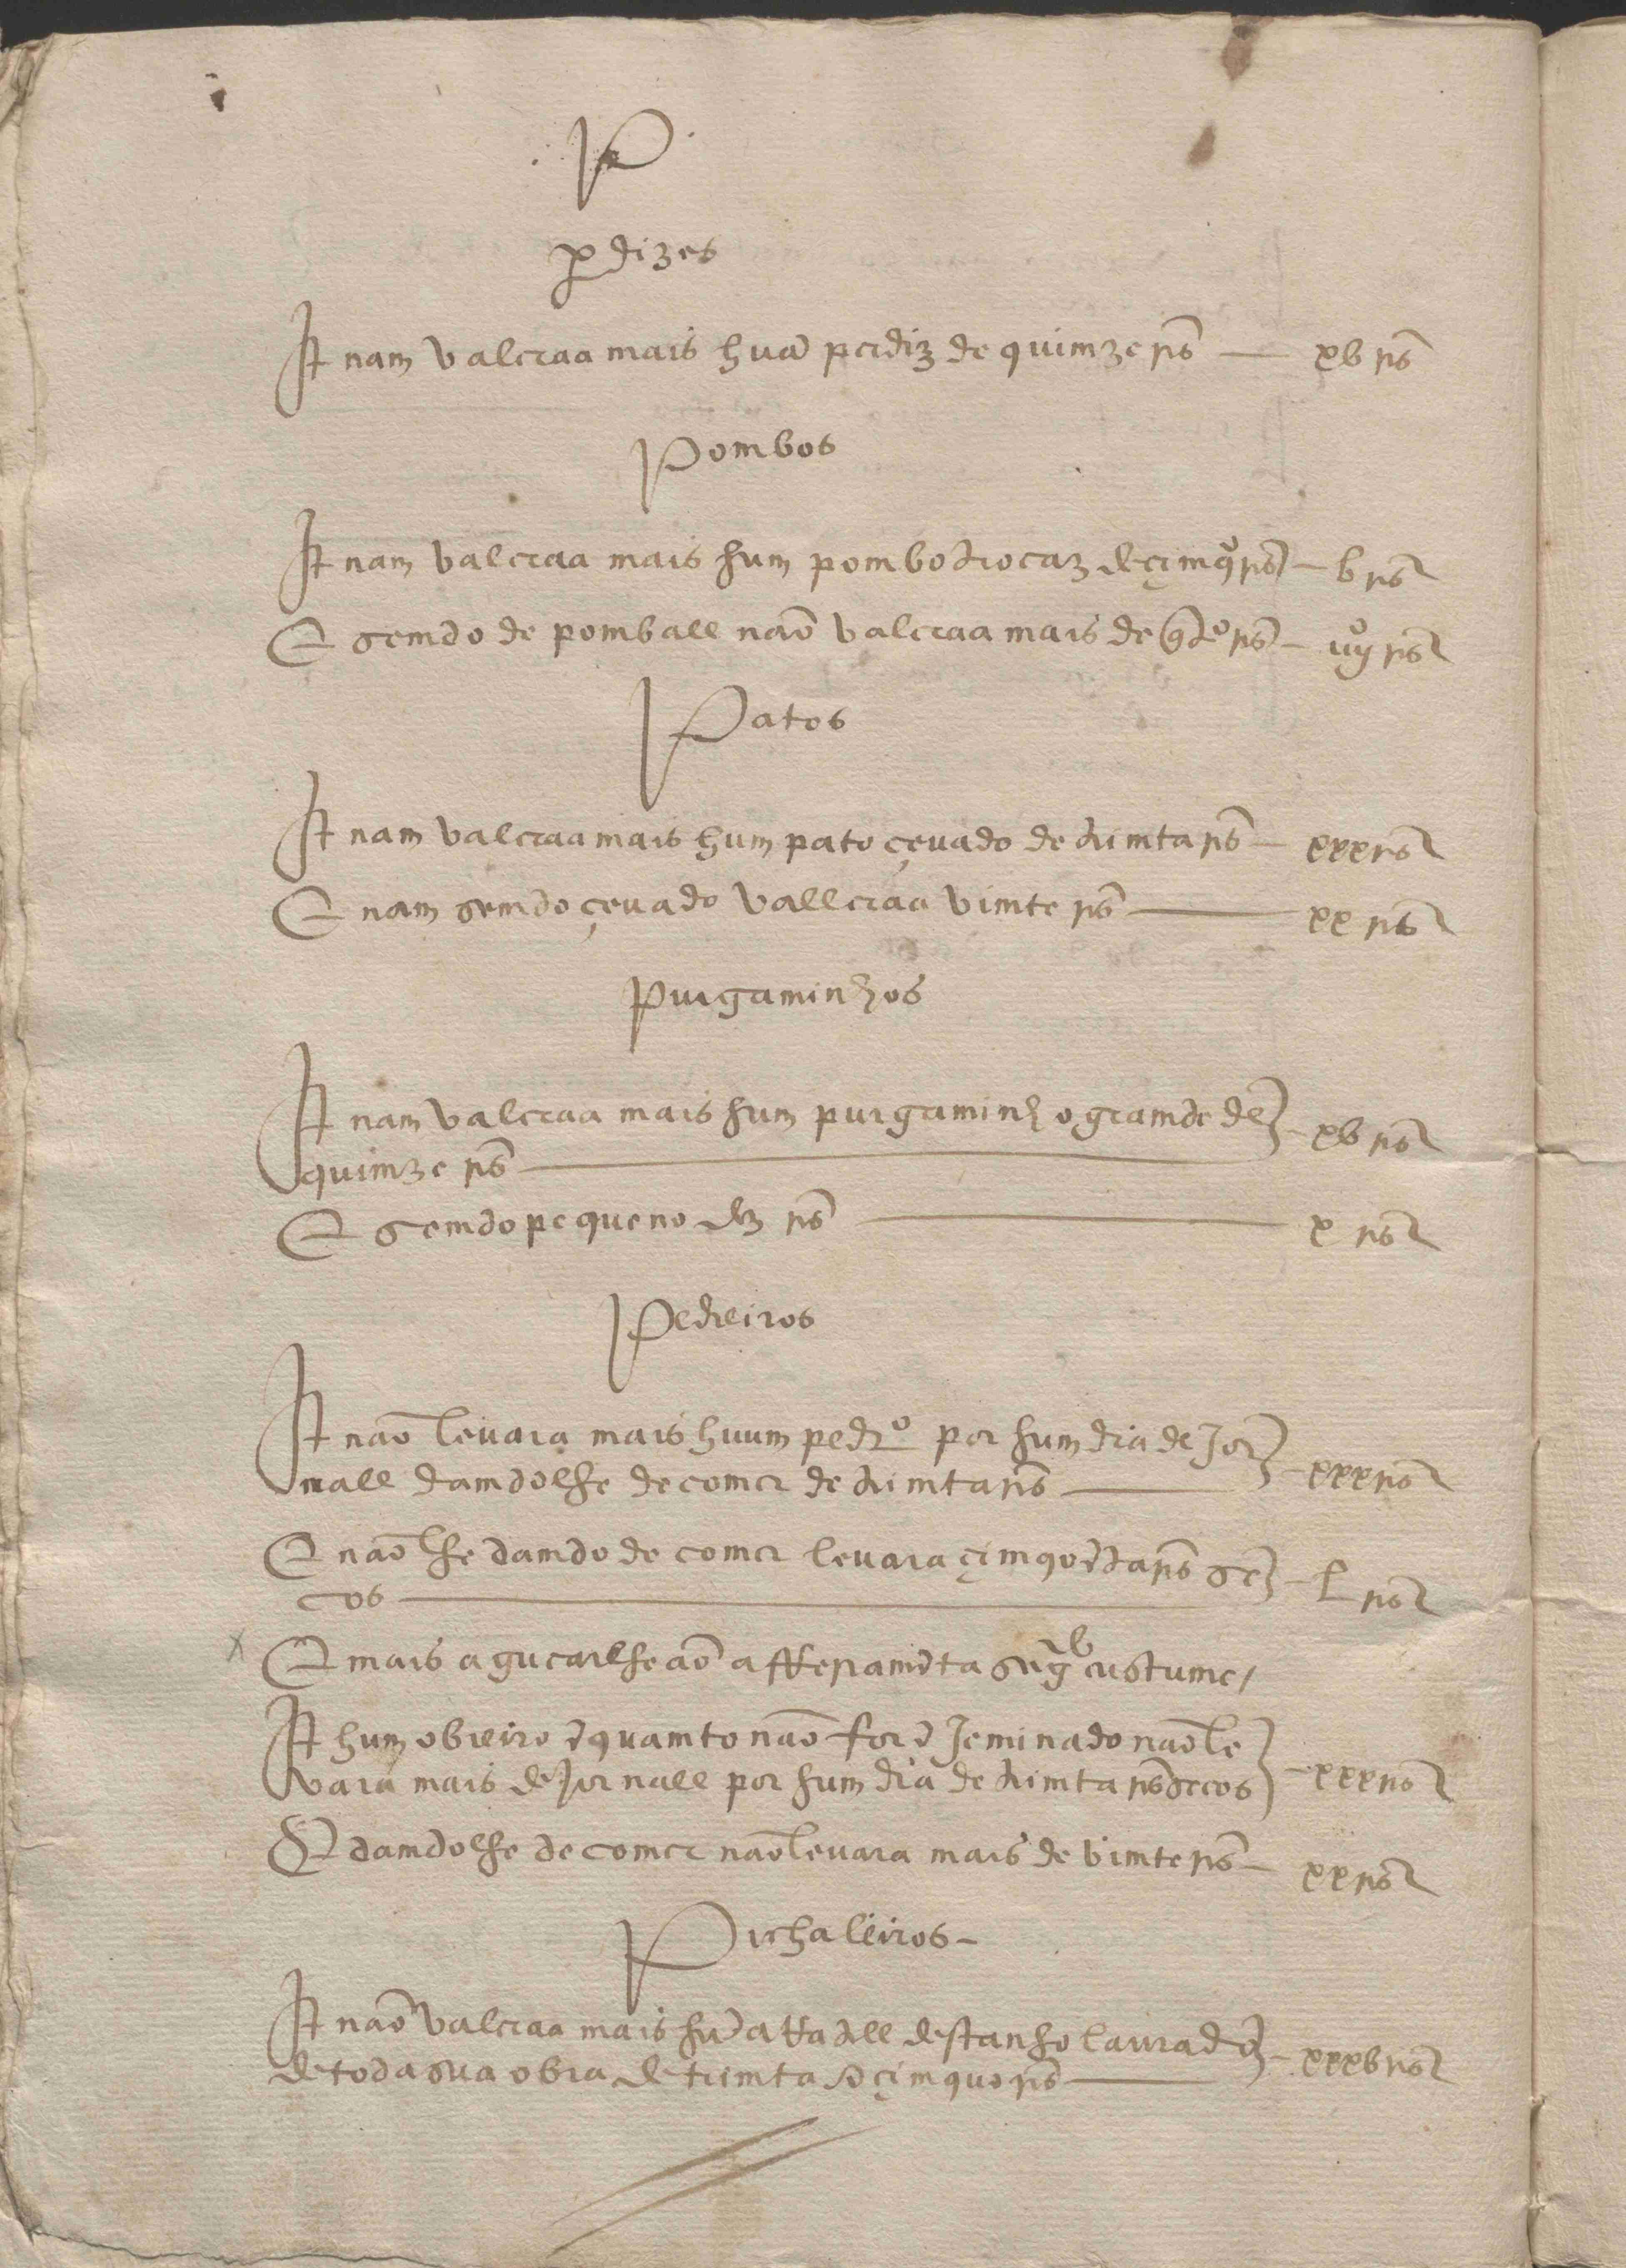 P
pdizes
It nam valeraa mais huã perdiz de quimze rs̃ — xb rs̃
Pombos
It nam valeraa mais hum pombo trocaz de çimqº rs̃ — b rs̃
E semdo de pomball não valeraa mais de qtº rs̃ — iiijº rs̃
Patos
It nam valeraa mais hum pato çevado de trimta rs̃ — xxx rs̃
E nam semdo çevado valleraa vimte rs̃ — xx rs̃
Purgaminhos
It nam valeraa mais hum purgaminho gramde de
quimze rs̃ — xb rs̃
E semdo pequeno dez rs̃ — x rs̃
Pedreiros
It não levara mais huum pedrº por hum dia de Jor
nall damdolhe de comer de trimta rs̃ — xxx rs̃
E não lhe damdo de comer levara çimqoẽta rs̃ se
cos — l rs̃
E mais aguçarlheão a fferramẽta segº custume /
It hum obreiro ẽquamto não for ẽJeminado não le
vara mais de Jornall por hum dia de trimta rs̃ secos — xxx rs̃
E damdolhe de comer não levara mais de vimte rs̃ — xx rs̃
Pichaleiros —
It não valeraa mais hũ attatell destanho lavrado
de toda sua obra de trimta e çimquo rs̃ — xxxb rs̃